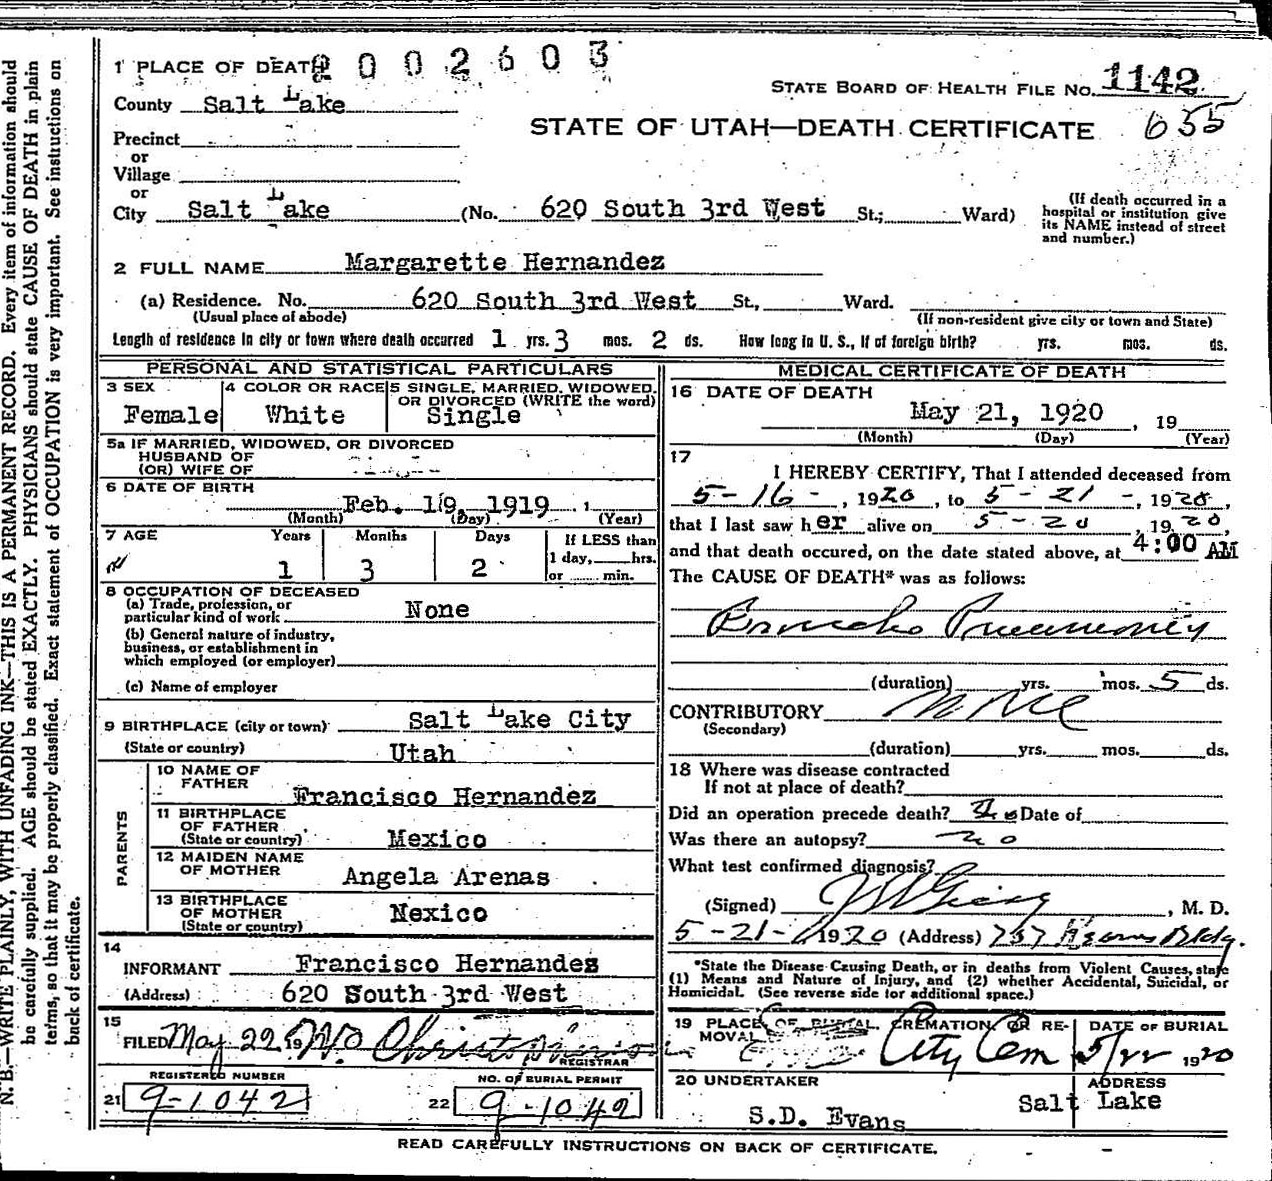 N. B.—WRITE PLAINLY, WITH UNFADING INK—THIS IS A PERMANENT RECORD. Every item of information should
be carefully supplied. AGE should be stated EXACTLY. PHYSICIANS should state CAUSE OF DEATH in plain
terms, so that it may be properly classified. Exact statement of OCCUPATION is very important. See instuctions on
back of certificate.
1 PLACE OF DEATH 2002603
STATE BOARD OF HEALTH FILE NO. 1142
County Salt Lake
STATE OF UTAH—DEATH CERTIFICATE 655
Precinct
or
Village
or
City Salt Lake (No. 620 South 3rd West St.; Ward)
(If death occurred in a
hospital or institution give
its NAME instead of street
and number.)
2 FULL NAME Margarette Hernandez
(a) Residence. No. 620 South 3rd West St., Ward.
(Usual place of abode) (If non-resident give city or town and State)
Length of residence in city or town where death occurred 1 yrs. 3 mos. 2 ds. How long in U. S., if of foreign birth? yrs. mos. ds.
PERSONAL AND STATISTICAL PARTICULARS
3 SEX 4 COLOR OR RACE 5 SINGLE, MARRIED, WIDOWED,
OR DIVORCED (WRITE the word)
Female White Single
5a IF MARRIED, WIDOWED, OR DIVORCED
HUSBAND OF
(OR) WIFE OF
6 DATE OF BIRTH
Feb. 19, 1919
(Month) (Day) (Year)
7 AGE Years Months Days If LESS than
1 day, hrs.
or min.
1 3 2
8 OCCUPATION OF DECEASED
(a) Trade, profession, or
particular kind of work None
(b) General nature of industry,
business, or establishment in
which employed (or employer)
(c) Name of employer
9 BIRTHPLACE (city or town) Salt Lake City
(State or country) Utah
PARENTS
10 NAME OF
FATHER Francisco Hernandez
11 BIRTHPLACE
OF FATHER
(State or country) Mexico
12 MAIDEN NAME
OF MOTHER Angela Arenas
13 BIRTHPLACE
OF MOTHER
(State or country) Mexico
14
INFORMANT Francisco Hernandez
(Address) 620 South 3rd West
15
FILED May 22 19
REGISTRAR
REGISTERED NUMBER NO. OF BURIAL PERMIT
21 9-1042 22 9-1042
MEDICAL CERTIFICATE OF DEATH
16 DATE OF DEATH
May 21, 1920, 19
(Month) (Day) (Year)
17
I HEREBY CERTIFY, That I attended deceased from
5-16-, 1920, to 5-21-, 1920,
that I last saw her alive on 5-20, 1920,
and that death occured, on the date stated above, at 4:00 AM
The CAUSE OF DEATH* was as follows:
Broncho Pneumonia
(duration) yrs. mos. 5 ds.
CONTRIBUTORY
(Secondary)
(duration) yrs. mos. ds.
18 Where was disease contracted
If not at place of death?
Did an operation precede death? No Date of
Was there an autopsy? no
What test confirmed diagnosis?
(Signed) , M. D.
5-21-1920 (Address) 737 Kearns Bldg.
*State the Disease Causing Death, or in deaths from Violent Causes, state
(1) Means and Nature of Injury, and (2) whether Accidental, Suicidal, or
Homicidal. (See reverse side for additional space.)
19 PLACE OF BURIAL, CREMATION OR RE-
MOVAL City Cem
DATE OF BURIAL
5/22 1920
20 UNDERTAKER ADDRESS
S.D. Evans Salt Lake
READ CAREFULLY INSTRUCTIONS ON BACK OF CERTIFICATE.